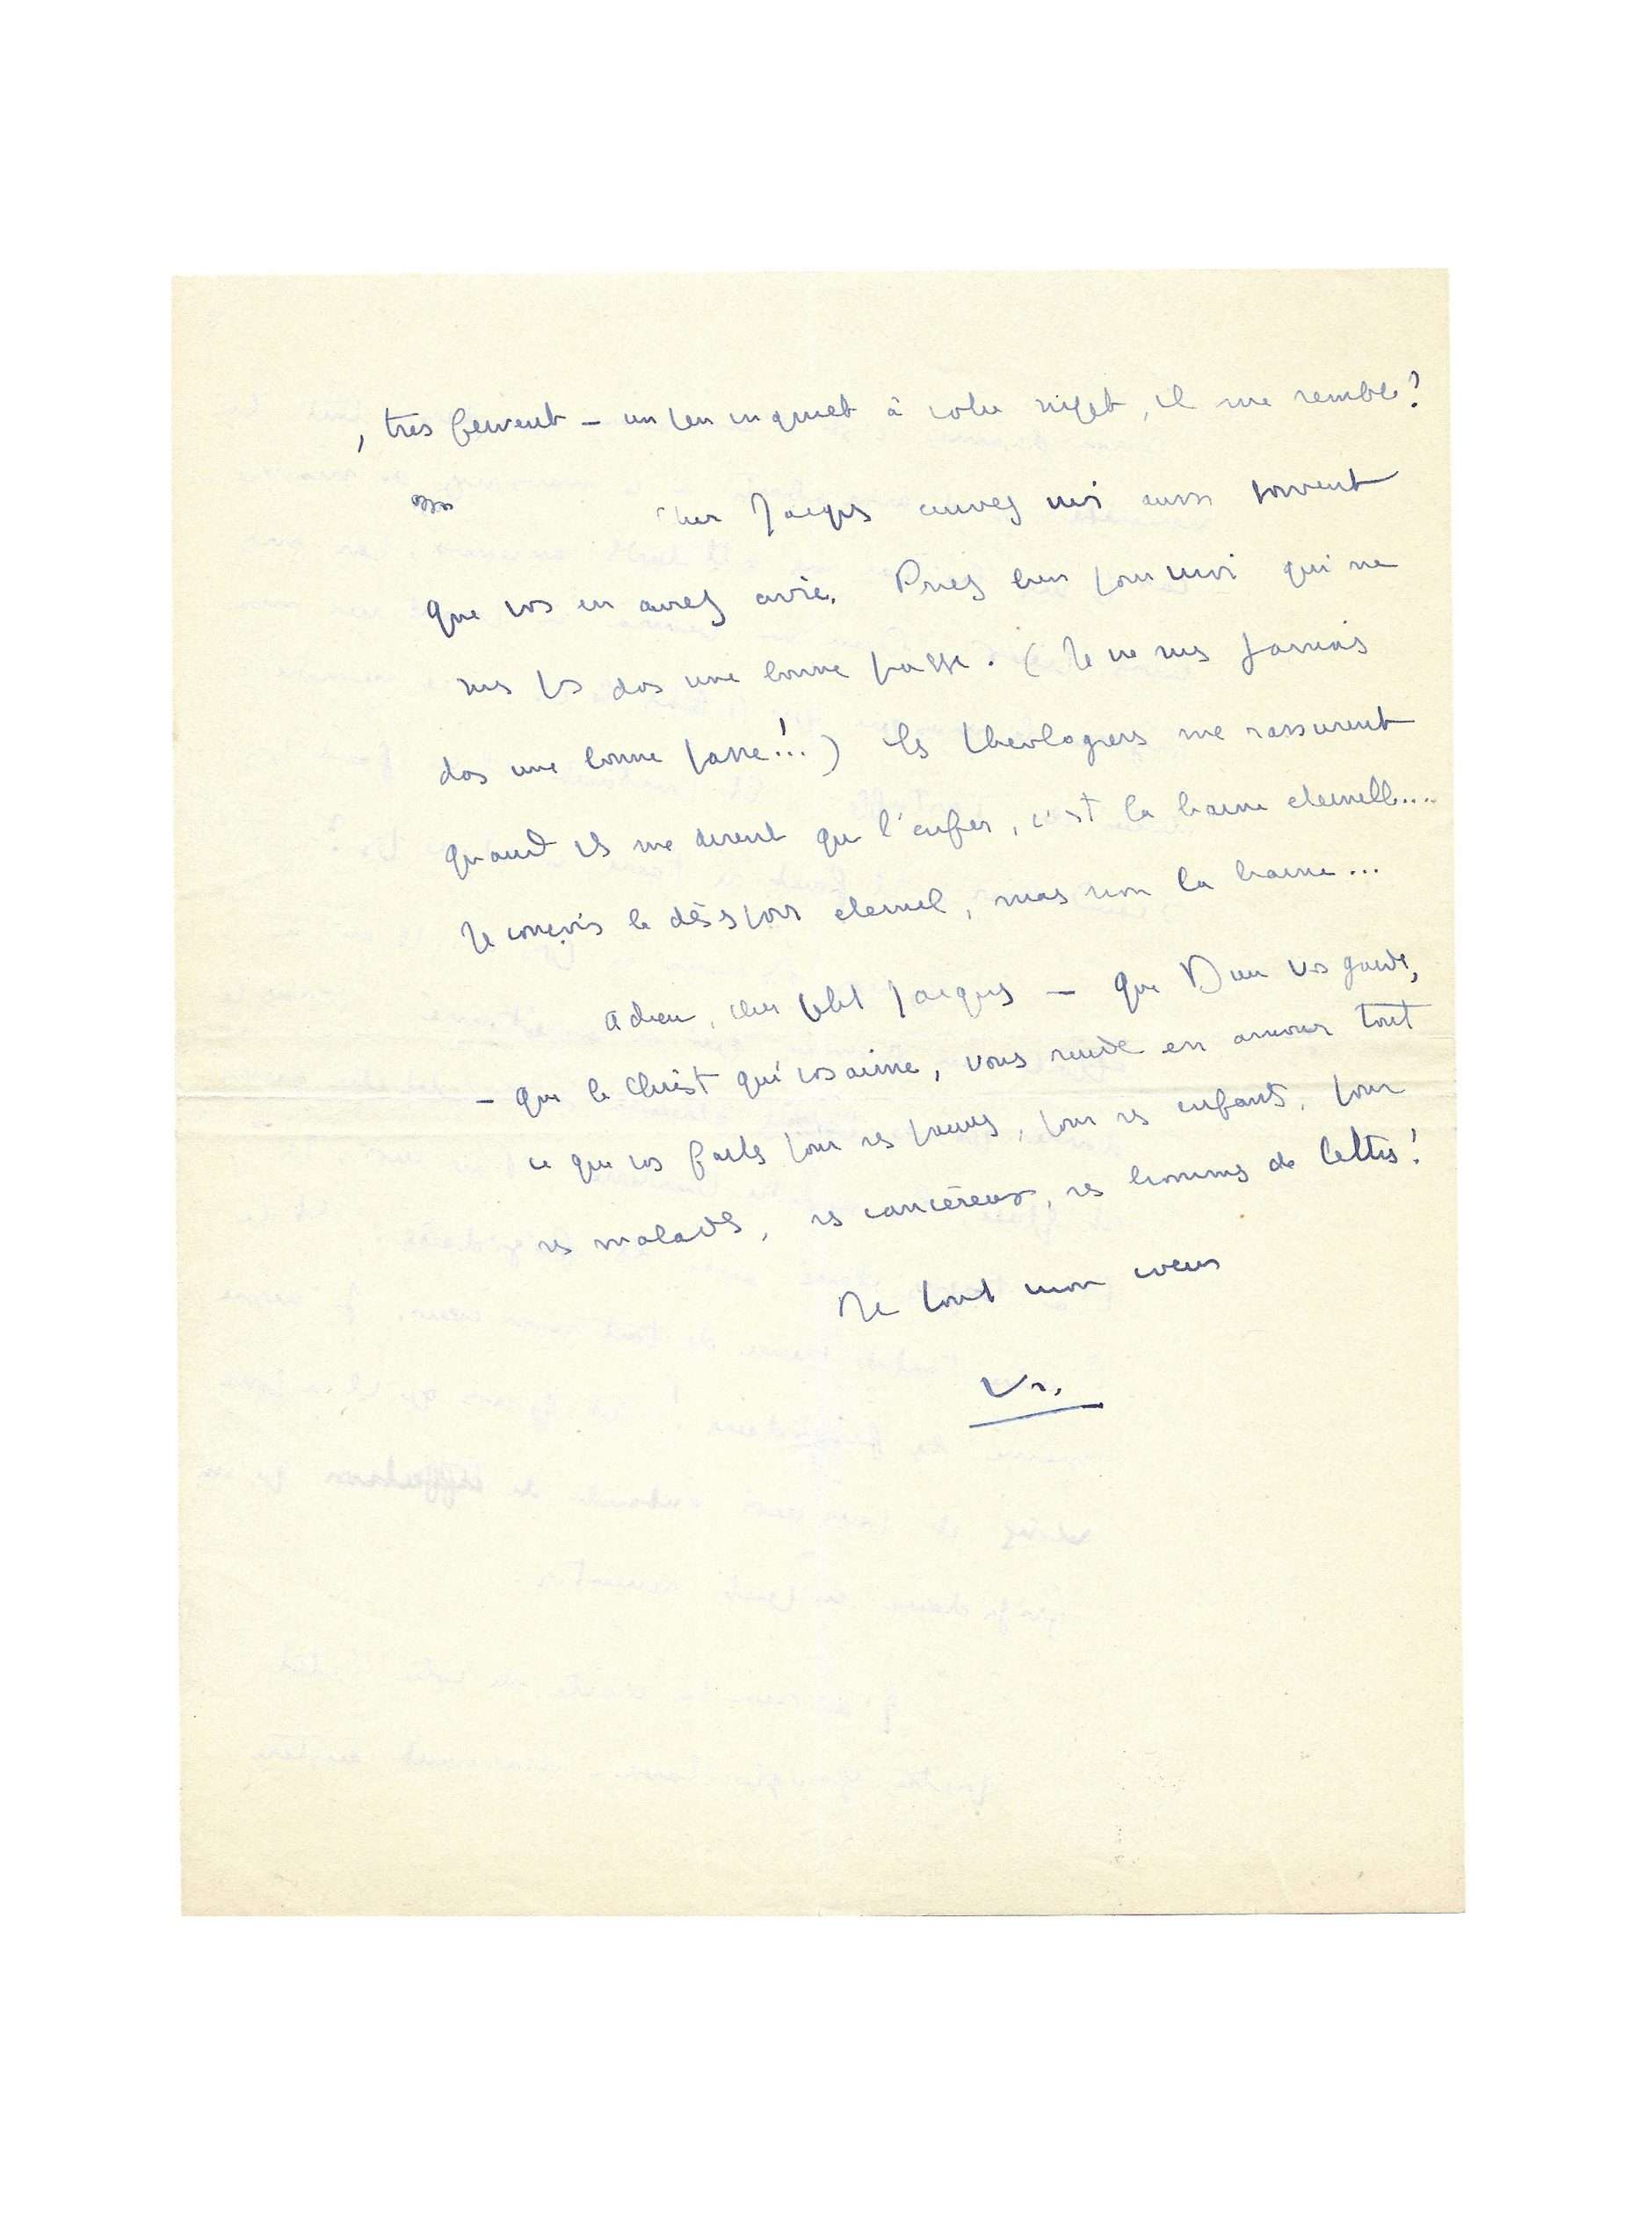 , très fervent – un peu inquiet à votre sujet, il me semble?
Cher Jacques écrivez moi aussi souvent
que vos en aurez envie. Priez bien pour moi qui ne
suis ps dans une bonne passe. (Je ne suis jamais
dans une bonne passe!..) Les théologiens me rassurent
quand ils me disent que l'enfer, c'est la haine éternelle....
Je conçois le désespoir éternel, mais non la haine...
Adieu, cher petit Jacques – que Dieu vos garde,
– que le Christ qui vos aime, vous rende en amour tout
ce que vos faites pour ses pauvres, pour ses enfants, pour
ses malades, ses cancéreux, ses hommes de lettres!
De tout mon coeur